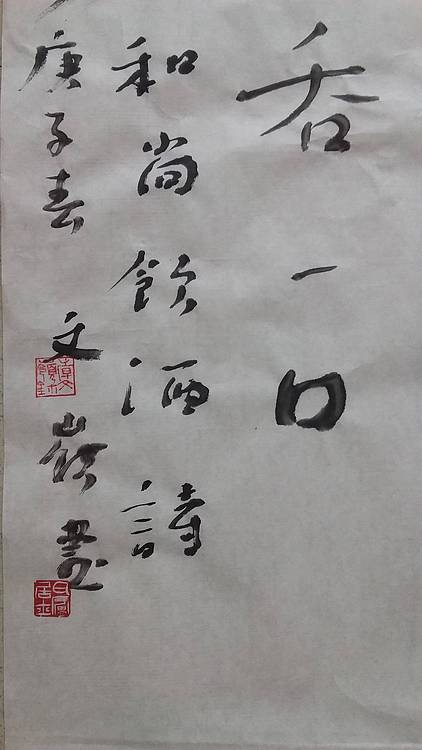 吞一口
和尚飲酒詩
庚子春 文嶺畫